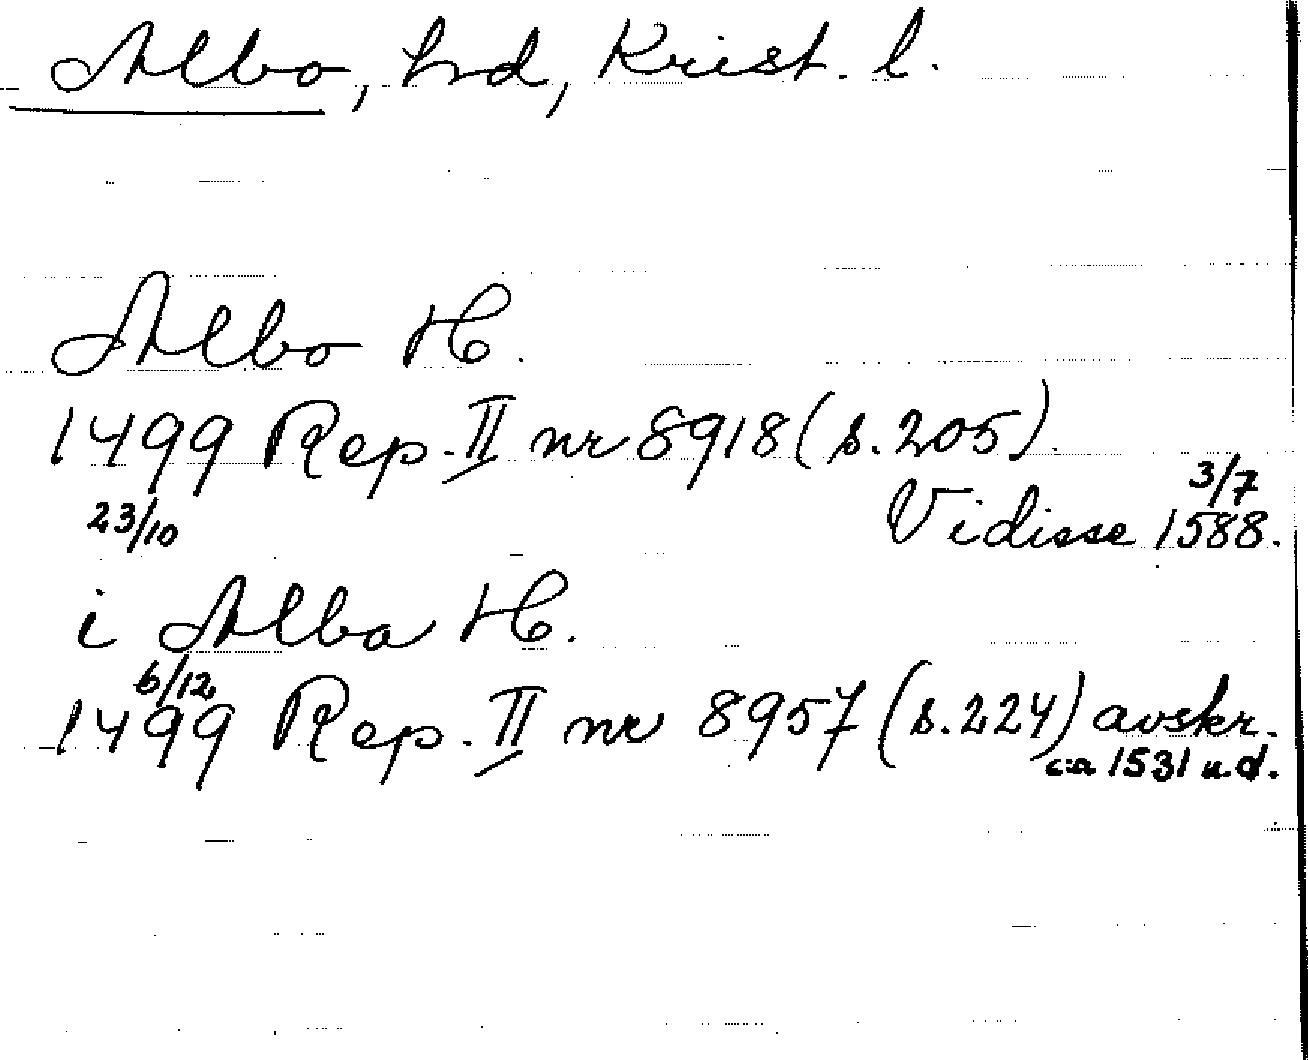 Albo, hrd, Krist. l.
Albo H.
1499 Rep. II nr 8918 (s. 205).
23/10 Vidisse 3/7 1588.
i Alba H.
6/12
1499 Rep. II nr 8957 (s. 224) avskr.
c:a 1531 u.d.